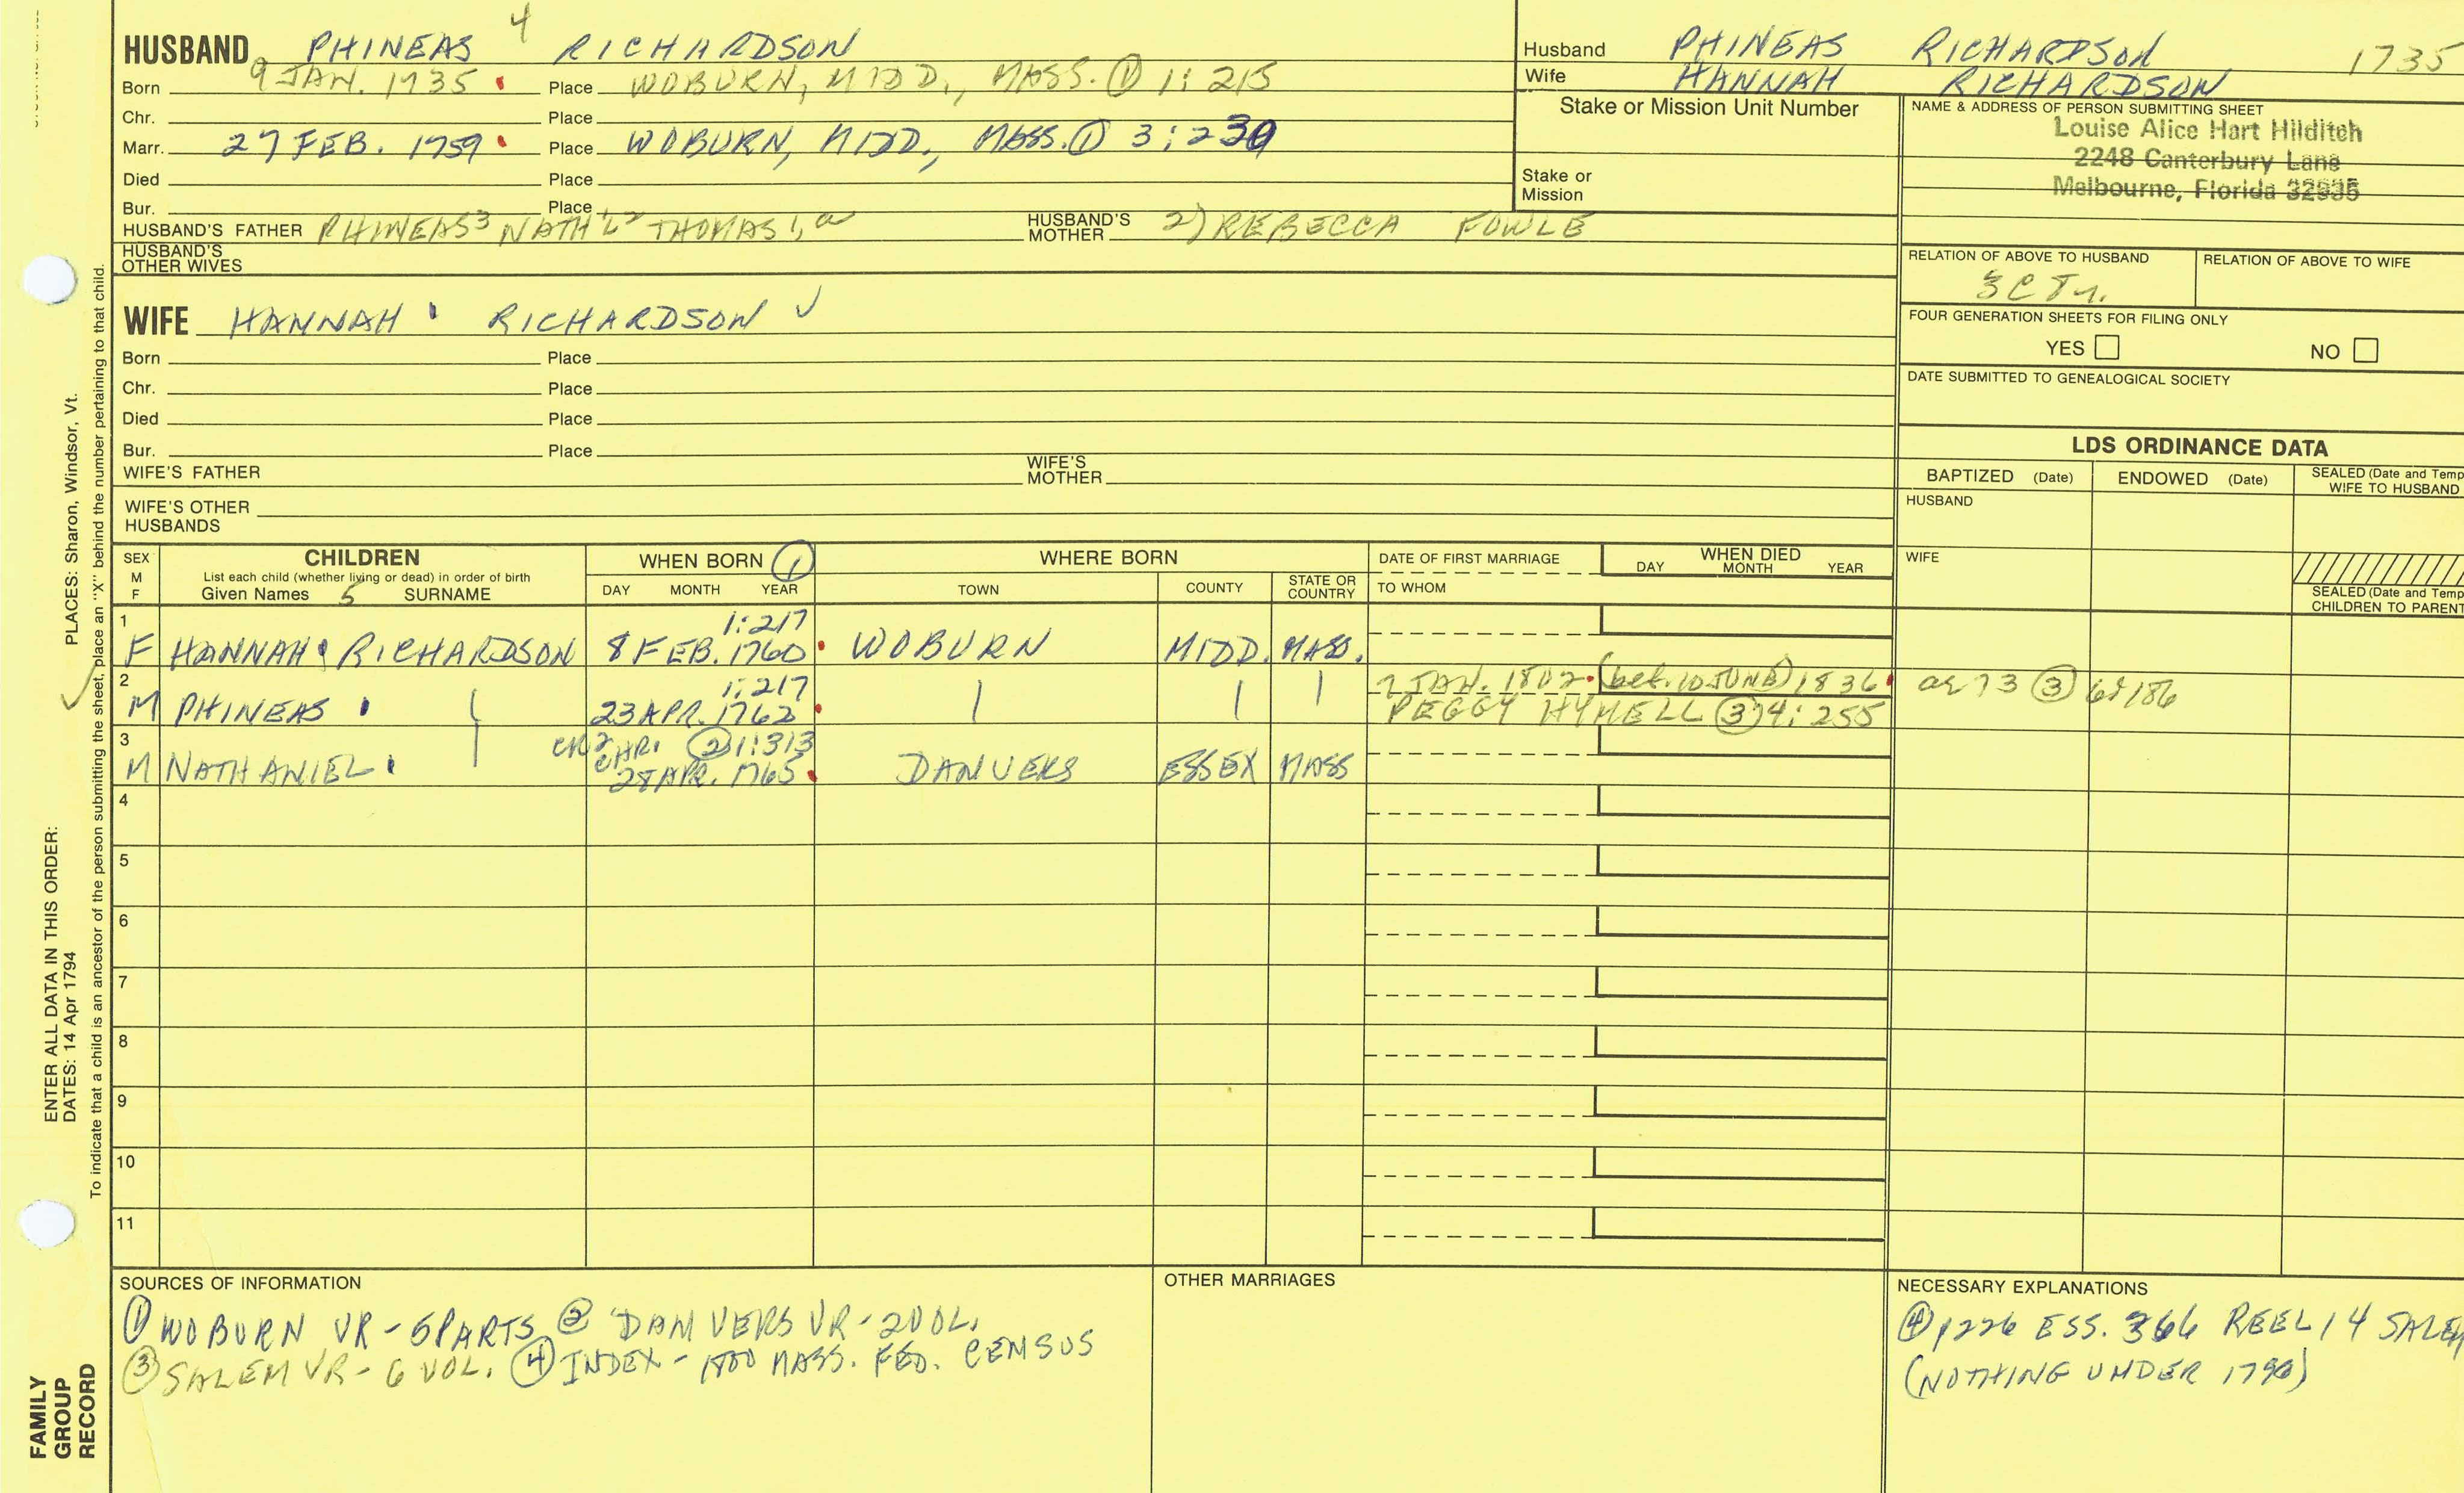 HUSBAND PHINEAS 4 RICHARDSON
Born 9 JAN. 1735 Place WOBURN, MIDD., MASS. ① 1:215
Chr. Place
Marr. 27 FEB. 1759 Place WOBURN, MIDD., MASS. ① 3:230
Died Place
Bur. Place
HUSBAND'S FATHER PHINEAS³ NATH'L² THOMAS¹, a
HUSBAND'S MOTHER 2) REBECCA FOWLE
HUSBAND'S OTHER WIVES
Husband PHINEAS RICHARDSON 1735
Wife HANNAH RICHARDSON
Stake or Mission Unit Number
Stake or Mission
NAME & ADDRESS OF PERSON SUBMITTING SHEET
Louise Alice Hart Hilditch
2248 Canterbury Lane
Melbourne, Florida 32935
RELATION OF ABOVE TO HUSBAND
RELATION OF ABOVE TO WIFE
FOUR GENERATION SHEETS FOR FILING ONLY
YES NO
DATE SUBMITTED TO GENEALOGICAL SOCIETY
WIFE HANNAH RICHARDSON
Born Place
Chr. Place
Died Place
Bur. Place
WIFE'S FATHER
WIFE'S MOTHER
WIFE'S OTHER HUSBANDS
LDS ORDINANCE DATA
BAPTIZED (Date) ENDOWED (Date) SEALED (Date and Temp
WIFE TO HUSBAND
HUSBAND
WIFE
SEALED (Date and Temp
CHILDREN TO PARENT
SEX M F
CHILDREN
List each child (whether living or dead) in order of birth
Given Names 5 SURNAME
WHEN BORN ①
DAY MONTH YEAR
WHERE BORN
TOWN COUNTY STATE OR COUNTRY
DATE OF FIRST MARRIAGE
TO WHOM
WHEN DIED
DAY MONTH YEAR
1 1:217
F HANNAH RICHARDSON 8 FEB. 1760 WOBURN MIDD. MASS.
2 1:217 7 JAN. 1802 (bef. 10 JUNE) 1836 ae 73 ③ 6:186
M PHINEAS 23 APR. 1762 PEGGY HYMELL ③ 4:255
3 CR2 CHR. ② 1:313
M NATHANIEL 28 APR. 1765 DANVERS ESSEX MASS
4
5
6
7
8
9
10
11
SOURCES OF INFORMATION
① WOBURN VR - 5 PARTS ② DANVERS VR - 2 VOL.
③ SALEM VR - 6 VOL. ④ INDEX - 1800 MASS. FED. CENSUS
OTHER MARRIAGES
NECESSARY EXPLANATIONS
④ p226 ESS. 366 REEL 14 SALEM
(NOTHING UNDER 1790)
ENTER ALL DATA IN THIS ORDER:
DATES: 14 Apr 1794 PLACES: Sharon, Windsor, Vt.
To indicate that a child is an ancestor of the person submitting the sheet, place an "X" behind the number pertaining to that child.
FAMILY
GROUP
RECORD